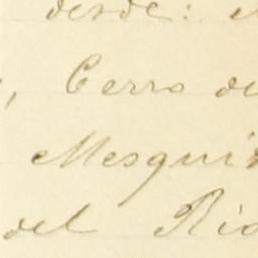 desde: e
, Cerro de
Mesqui
del Rio